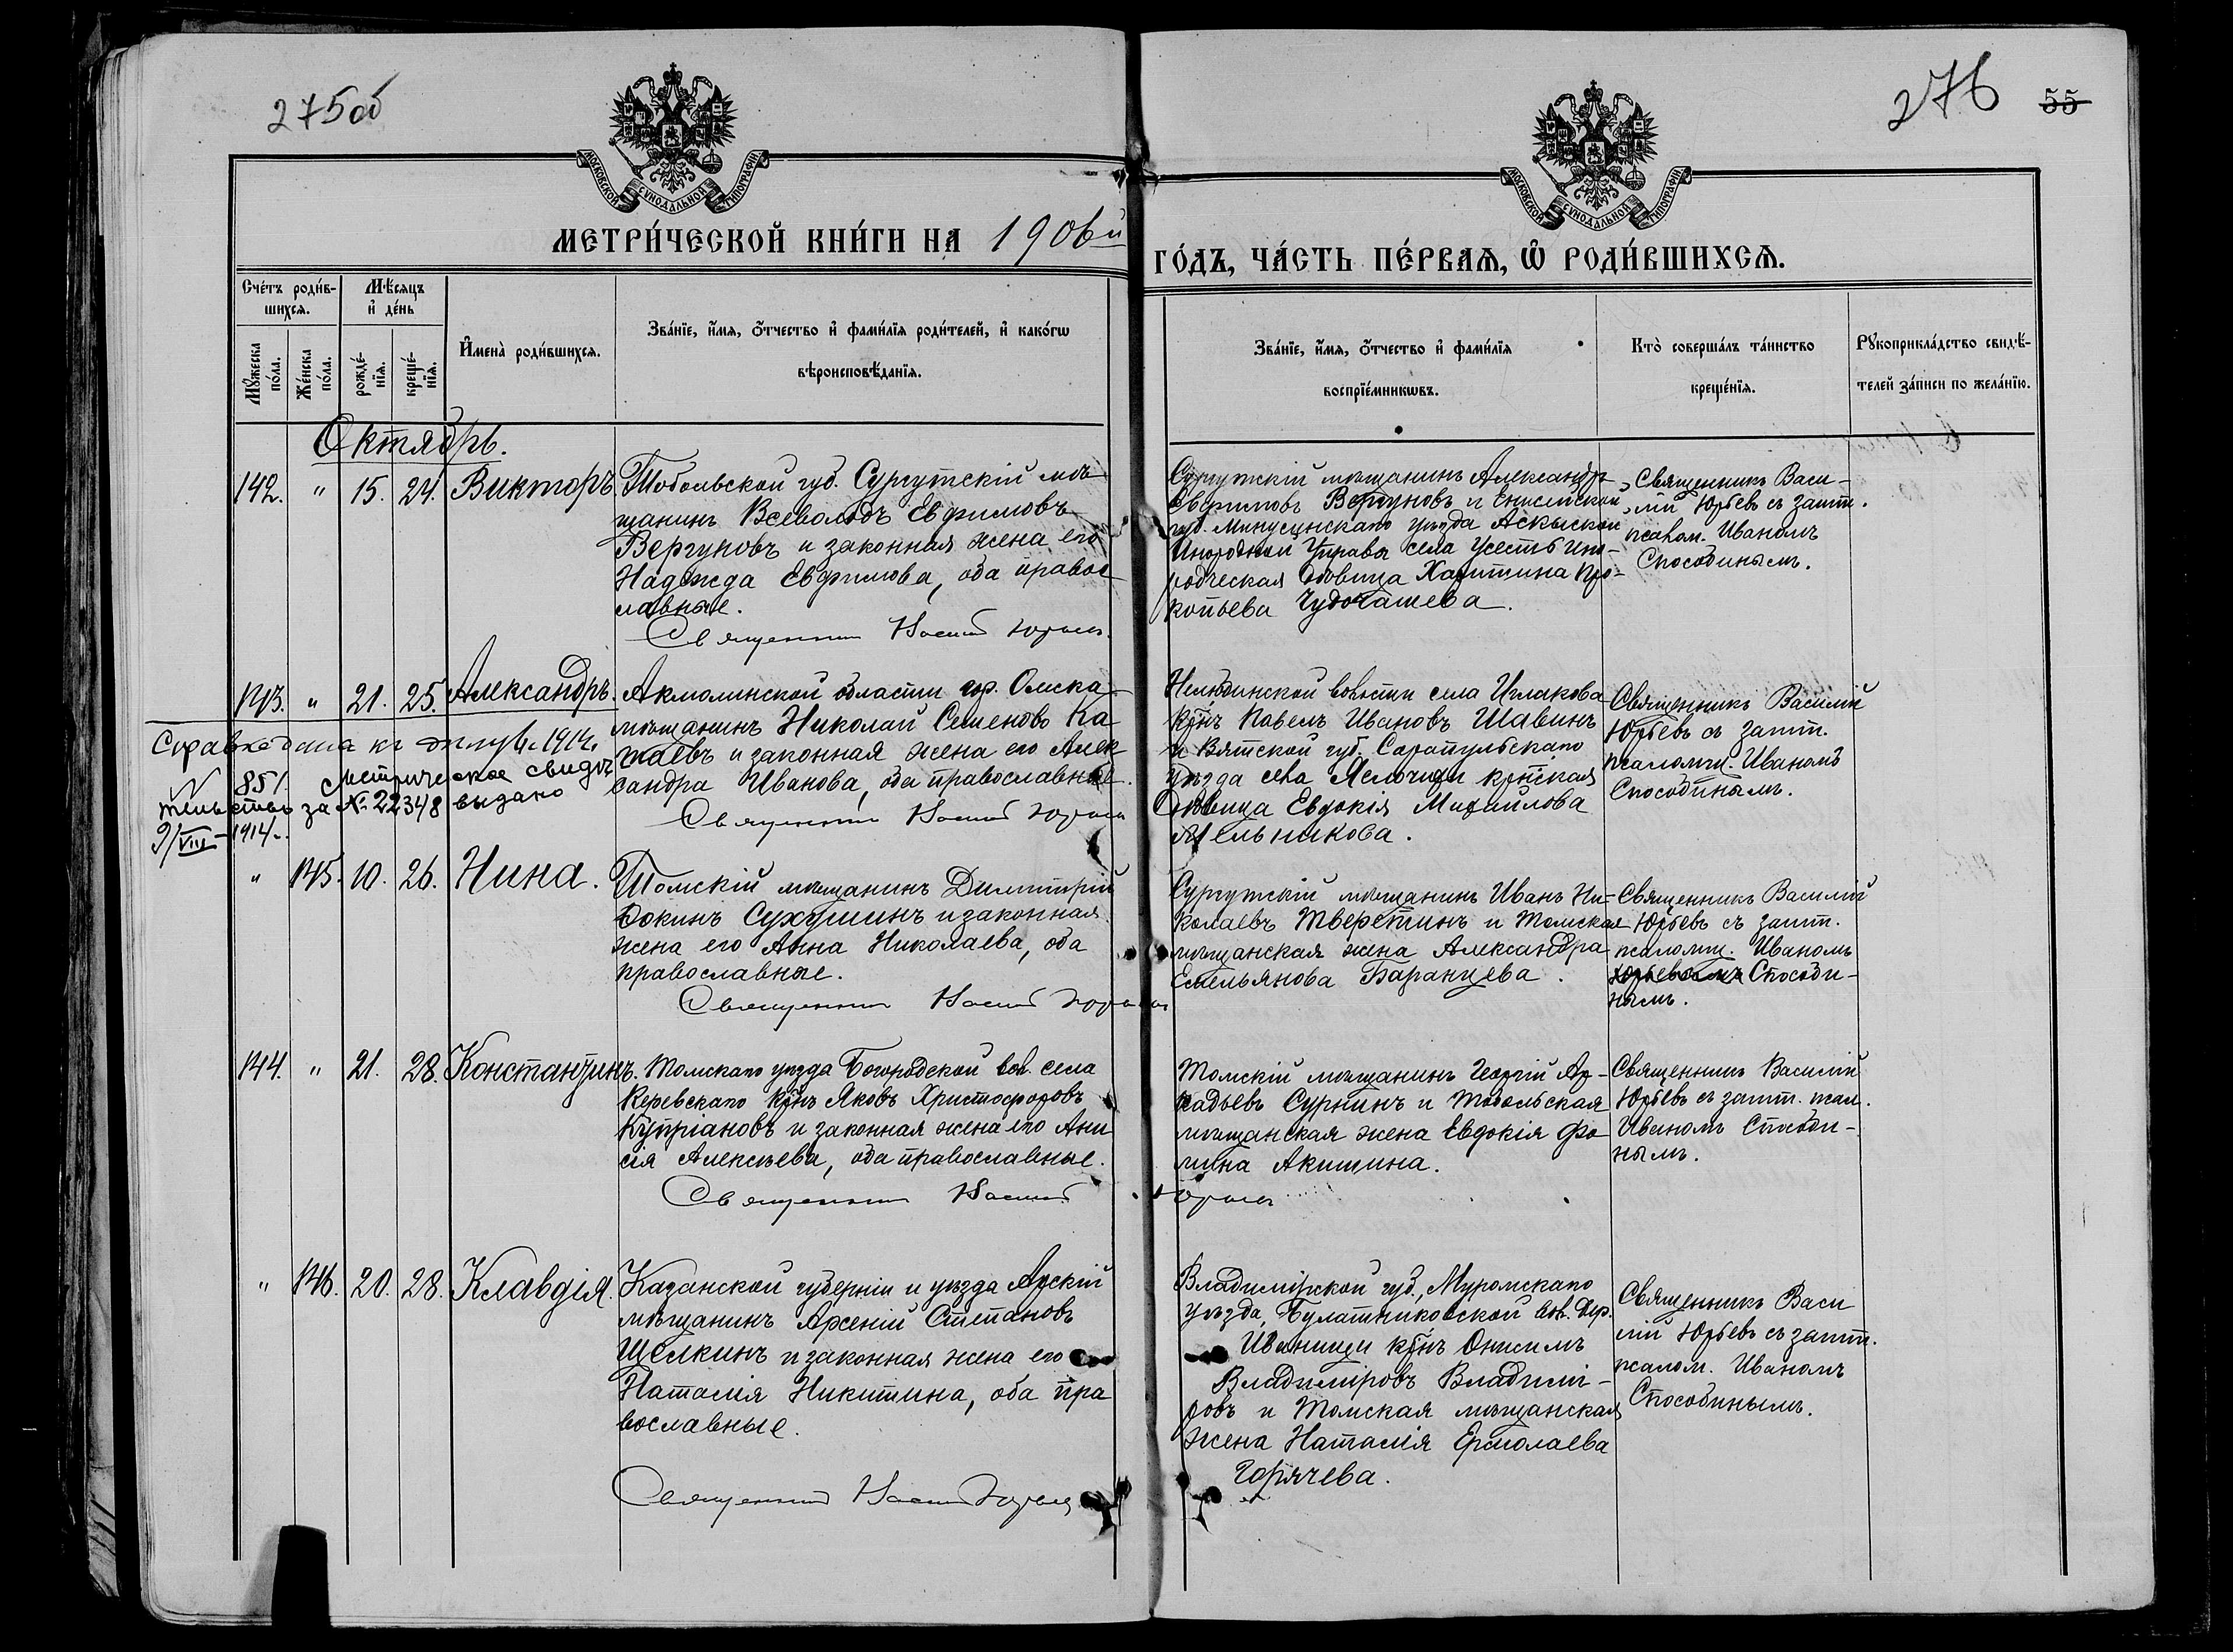 275об
276
55
МОСКОВСКОЙ СѴНОДАЛЬНОЙ ТИПОГРАФІИ
МОСКОВСКОЙ СѴНОДАЛЬНОЙ ТИПОГРАФІИ
МЕТРИ́ЧЕСКОЙ КНИ́ГИ НА 1906й
ГО́ДЪ, ЧА́СТЬ ПЕ́РВАѦ, Ѡ҆ РОДИ́ВШИХСѦ.
Сче́тъ роди́в-
шихсѧ.
Мѣ́сяцъ
и҆ де́нь
Мꙋ́жеска
по́ла.
Же́нска
по́ла.
рожде́-
нїѧ.
креще́-
нїѧ.
И҆мена̀ роди́вшихсѧ.
Зва́нїе, и҆́мѧ, ѻ҆́тчество и҆ фами́лїѧ роди́телей, и҆ како́гѡ
вѣроисповѣ́данїѧ.
Зва́нїе, и҆́мѧ, ѻ҆́тчество и҆ фами́лїѧ
воспрїе́мникѡвъ.
Кто̀ соверша́лъ та́инство
креще́нїѧ.
Рꙋкоприкла́дство свидѣ́-
телей за́писи по жела́нїю.
Октябрь.
142. " 15. 24. Викторъ
Тобольской губ. Сургутскій мѣ-
щанинъ Всеволодъ Евфимовъ
Вергуновъ и законная жена его
Надежда Евфимова, оба правос-
лавные.
Священникъ Василій Юрьевъ
Сургутскій мѣщанинъ Александръ
Евфимовъ Вергуновъ и Енисейской
губ. Минусинскаго уѣзда Аскыской
Инородной Управы села Усесть ино-
родческая дѣвица Харитина Про-
копьева Чудогашева.
Священникъ Васи-
лій Юрьевъ съ зашт.
псалом. Иваномъ
Способинымъ.
143. " 21. 25. Александръ.
Акмолинской области гор. Омска
мѣщанинъ Николай Семеновъ Ка-
жаевъ и законная жена его Алек
сандра Иванова, оба православные.
Священникъ Василій Юрьевъ
Нелюбинской волости села Иглакова
крнъ Павелъ Ивановъ Шавинъ
и Вятской губ. Сарапульскаго
уѣзда села крнская
дѣвица Евдокія Михайлова
Мельникова.
Священникъ Василій
Юрьевъ съ зашт.
псаломщ. Иваномъ
Способинымъ.
Справка дана къ 1914г.
N 851. Метрическое свидѣ
тельство за № 22348 выдано
9/VIII-1914г.
" 145. 10. 26. Нина.
Томскій мѣщанинъ Димитрій
Фокинъ Сухушинъ и законная
жена его Анна Николаева, оба
православные.
Священникъ Василій Юрьевъ
Сургутскій мѣщанинъ Иванъ Ни-
колаевъ Тверетинъ и Томская
мѣщанская жена Александра
Емельянова Баранцева.
Священникъ Василій
Юрьевъ съ зашт.
псаломщ. Иваномъ
Юрьевымъ Способи-
нымъ.
144. " 21. 28. Константинъ.
Томскаго уѣзда Богородской вол. села
Керевскаго крнъ Яковъ Христофоровъ
Купріановъ и законная жена его Ани
сія Алексѣева, оба православные.
Священникъ Василій Юрьевъ
Томскій мѣщанинъ Георгій Ар-
кадьевъ Сурнинъ и Тобольская
мѣщанская жена Евдокія Фо-
мина Акишина.
Священникъ Василій
Юрьевъ съ зашт. псал.
Иваномъ Способи-
нымъ.
" 146. 20. 28. Клавдія.
Казанской губерніи и уѣзда Арскій
мѣщанинъ Арсеній Степановъ
Щелкинъ и законная жена его
Наталія Никитина, оба пра
вославные.
Священникъ Василій Юрьевъ
Владимірской губ., Муромскаго
уѣзда, Булатниковской вол. дер.
Иванищи крнъ Онисимъ
Владиміровъ Владимі-
ровъ и Томская мѣщанская
жена Наталія Ермолаева
Горячева.
Священникъ Васи
лій Юрьевъ съ зашт.
псалом. Иваномъ
Способинымъ.